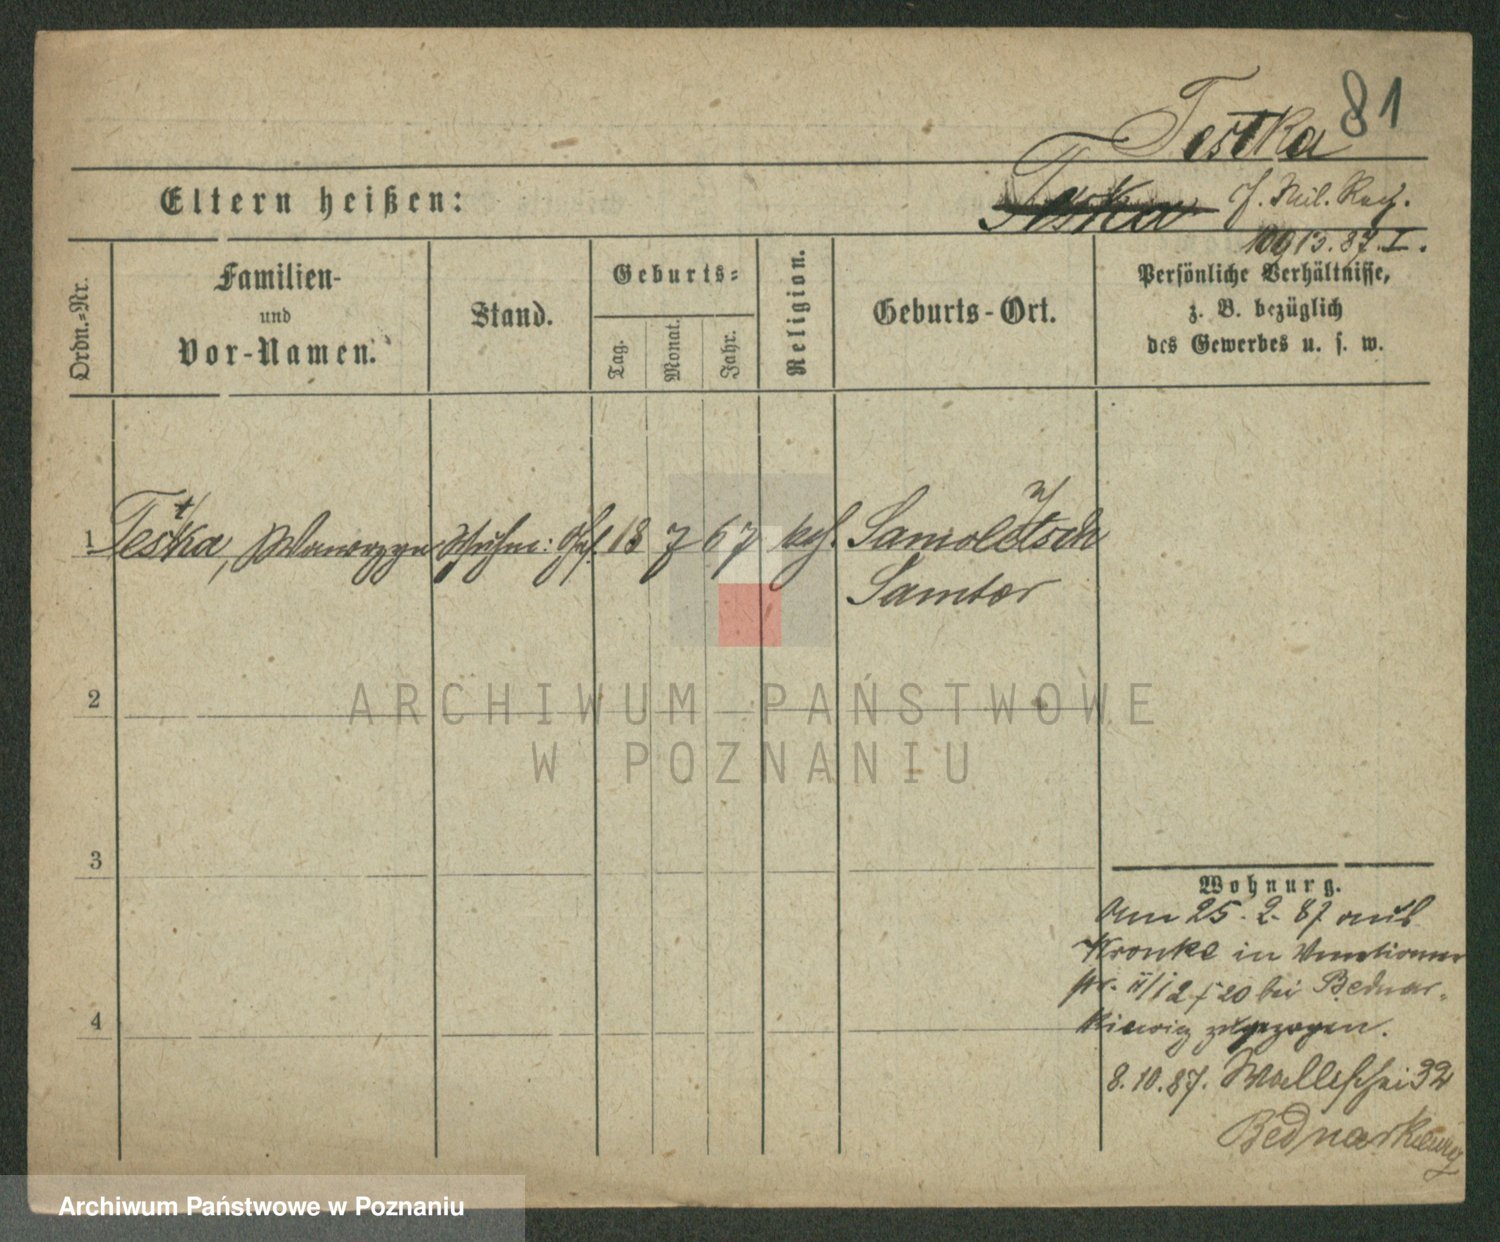 81
Testka
Teska cf. Mil. Reg.
10913.87.I.
Eltern heißen:
Ordn.-Nr.
Familien-
und
Vor-Namen.
Stand.
Geburts-
Tag.
Monat.
Jahr.
Religion.
Geburts-Ort.
Persönliche Verhältnisse,
z. B. bezüglich
des Gewerbes u. s. w.
1 Testka, Wawrzyn 13 7 67 kath.
Samter
2
3
4
Wohnung.
Am 25.2.87 aus
in Venetianer
str. 11/12 f 20 bei Bednar-
kiewicz zugezogen.
8.10.87. Wallischei 32
Bednarkiewicz
ARCHIWUM PAŃSTWOWE
W POZNANIU
Archiwum Państwowe w Poznaniu